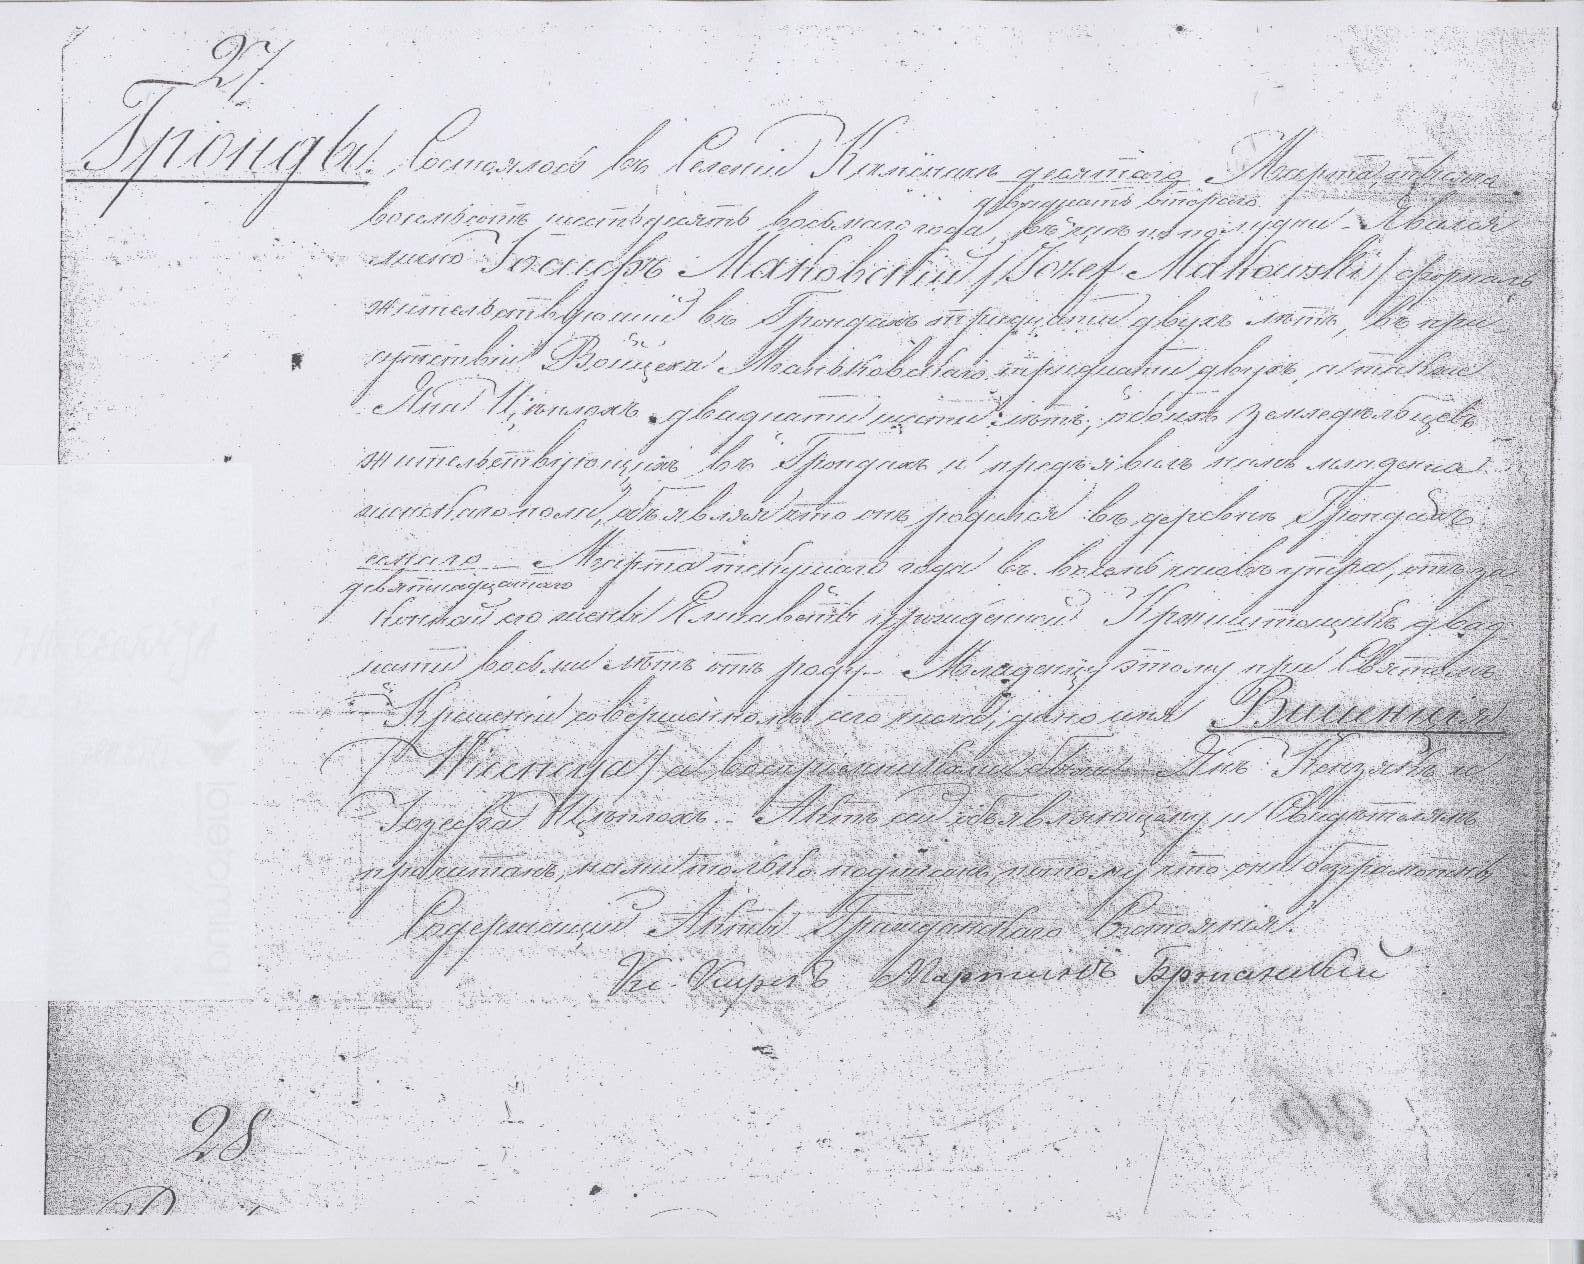 27
Гронды.
Состоялось въ Селеніи десятаго Марта, тысяча
двадцать втораго
восемьсотъ шестьдесятъ восьмаго года, въ по полудни. Явился
лично Іосифъ Маковскій /Józef Makowski/
жительствующій въ Грондахъ тридцати двухъ лѣтъ, въ при-
сутствіи Войцеха Маньковскаго тридцати двухъ, а также
Яна Цѣплохъ двадцати шести лѣтъ, обоихъ земледѣльцевъ
жительствующихъ въ Грондахъ и предъявилъ намъ младенца
женскаго пола, объявляя что онъ родился въ деревнѣ Грондахъ
седмаго Марта текущаго года въ восемь часовъ утра, отъ за-
девятнадцатаго
конной его жены Елизаветы урожденной двад-
цати восьми лѣтъ отъ роду. Младенцу этому при Святомъ
Крещеніи совершенномъ сего числа, дано имя Викенція
/Wicencya/ а воспріемниками были Янъ и
Іозефа Цѣплохъ. Актъ сей объявляющему и Свидѣтелямъ
прочитанъ, нами только подписанъ, потому что они безграмотны
Содержащій Акты Гражданскаго Состоянія.
Мартинъ
28